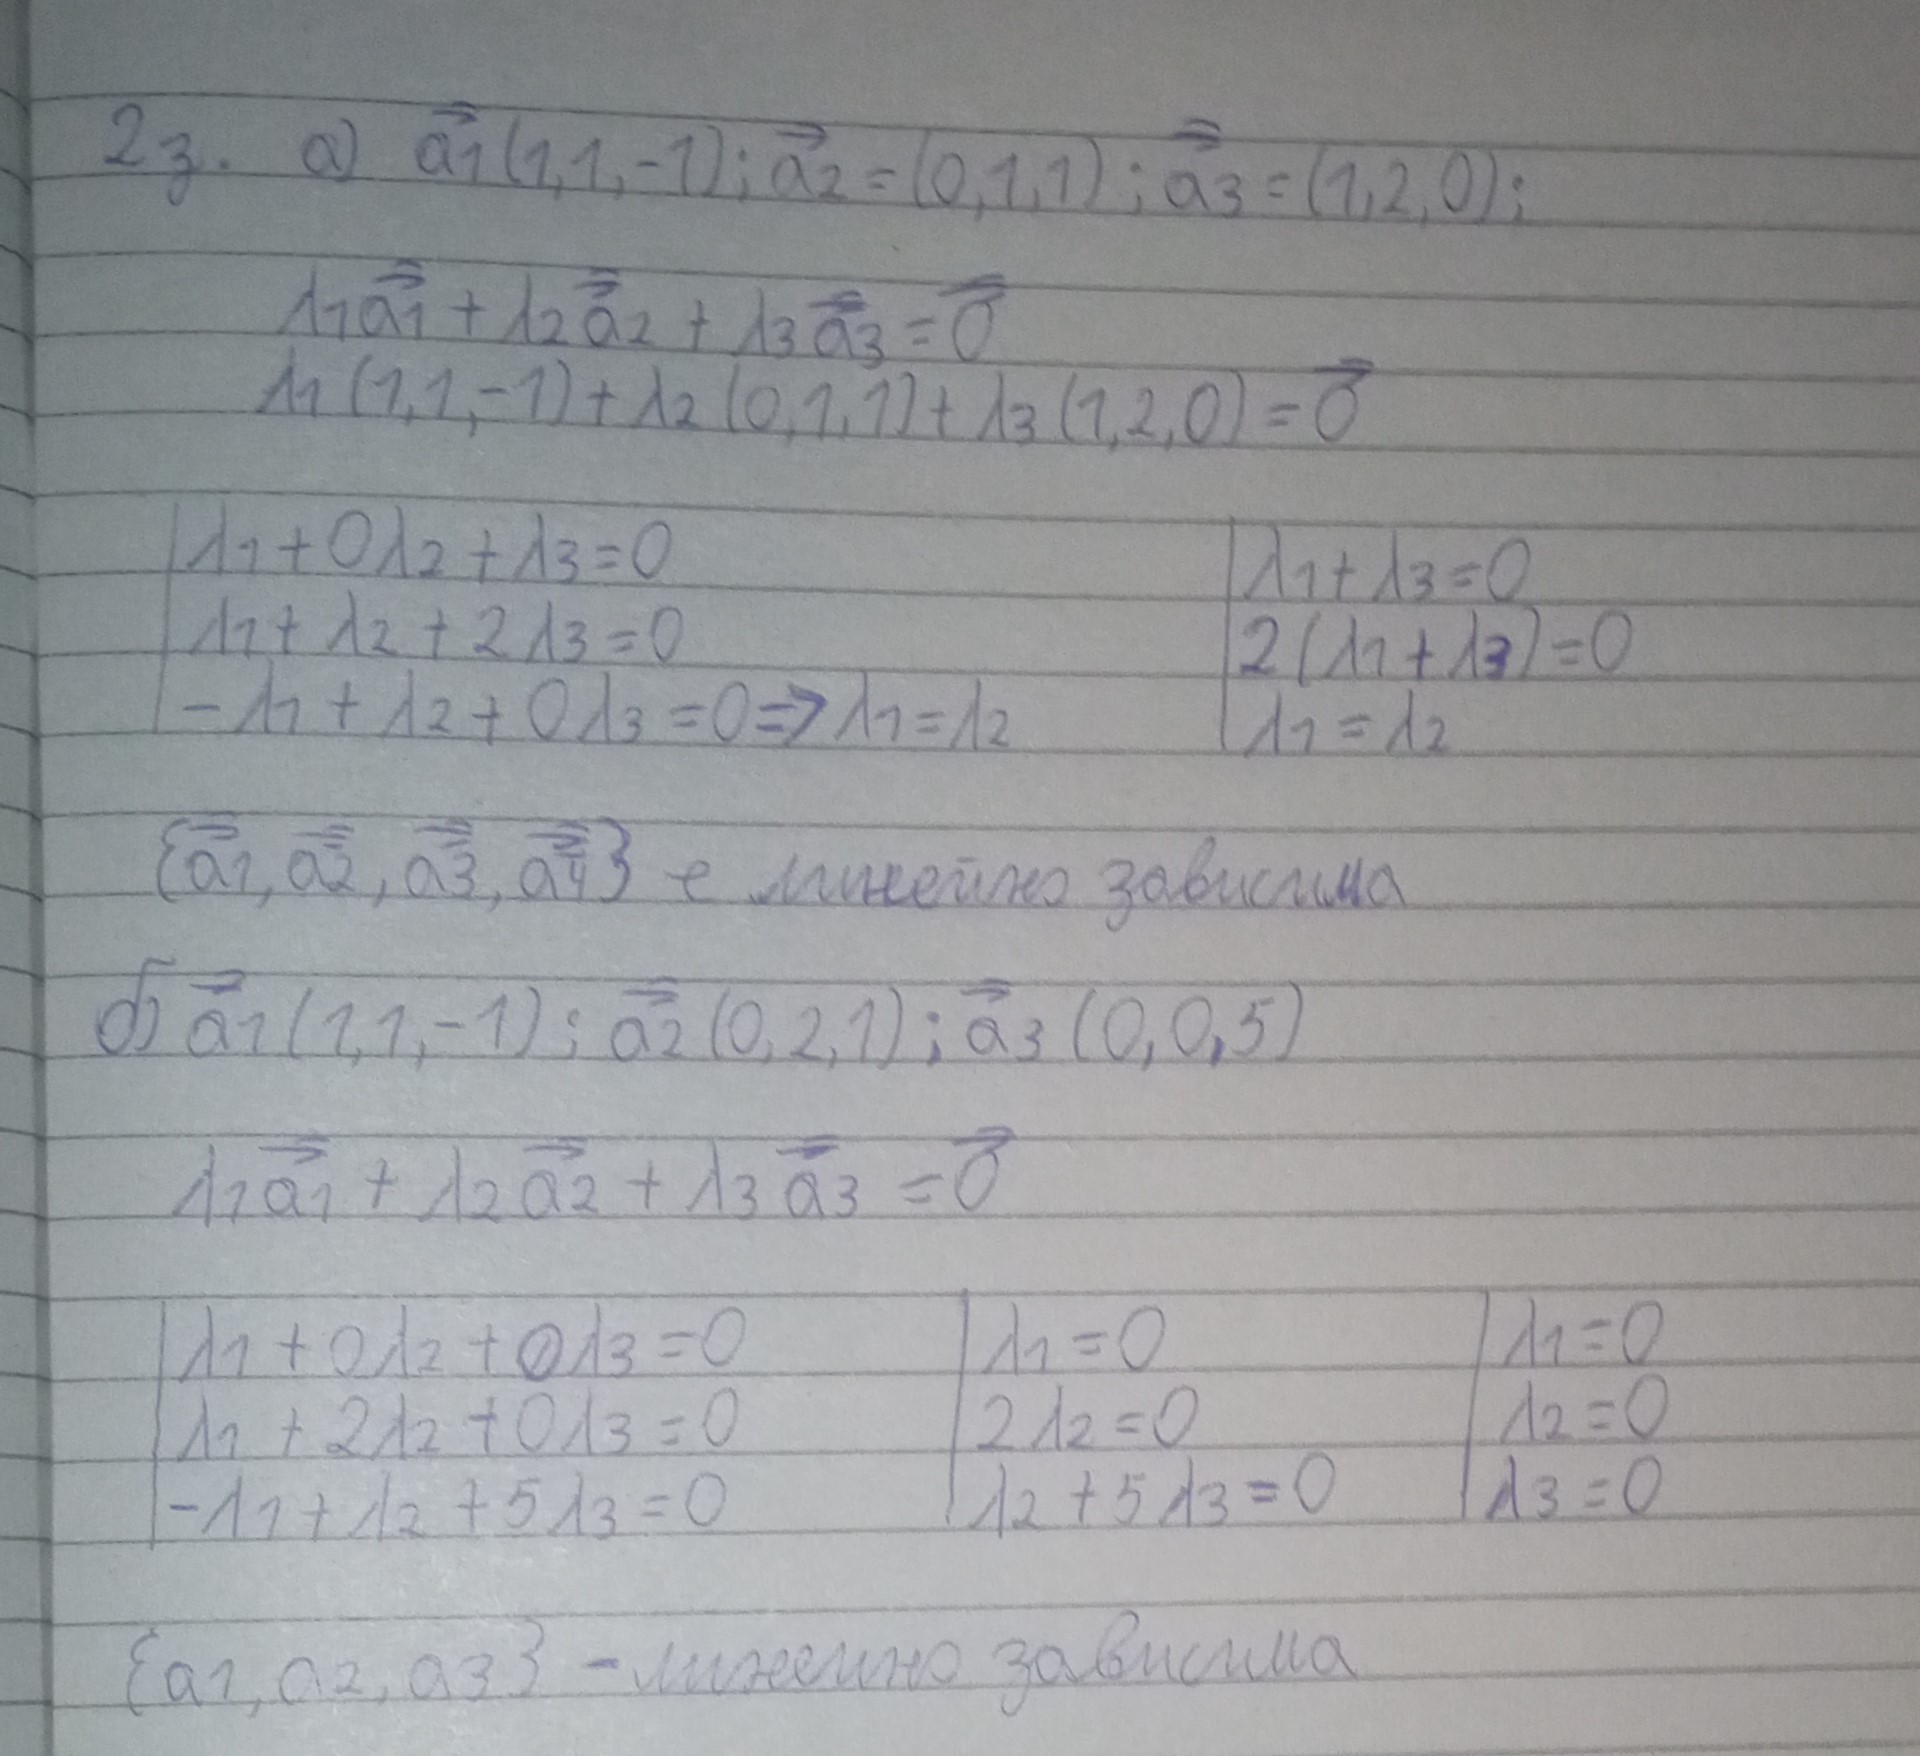 2з. а) a⃗1(1,1,-1); a⃗2=(0,1,1); a⃗3=(1,2,0);
λ1a⃗1+λ2a⃗2+λ3a⃗3=0⃗
λ1(1,1,-1)+λ2(0,1,1)+λ3(1,2,0)=0⃗
|λ1+0λ2+λ3=0 |λ1+λ3=0
|λ1+λ2+2λ3=0 |2(λ1+λ3)=0
|-λ1+λ2+0λ3=0⇒λ1=λ2 |λ1=λ2
{a⃗1,a⃗2,a⃗3,a⃗4} е линейно зависима
б) a⃗1(1,1,-1); a⃗2(0,2,1); a⃗3(0,0,5)
λ1a⃗1+λ2a⃗2+λ3a⃗3=0⃗
|λ1+0λ2+0λ3=0 |λ1=0 |λ1=0
|λ1+2λ2+0λ3=0 |2λ2=0 |λ2=0
|-λ1+λ2+5λ3=0 |λ2+5λ3=0 |λ3=0
{a1,a2,a3} - линейно зависима